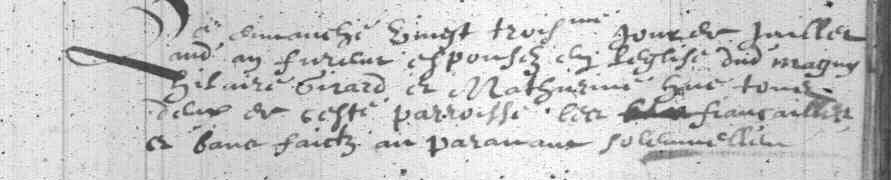 Le dimanche vingt troisme jour de juillet
aud an furent espousez en leglise dud magny
Hilaire Girard et Mathurine Hue tous
deux de ceste parroisse les fiancailles
et bans faictz au paravant solemnellem